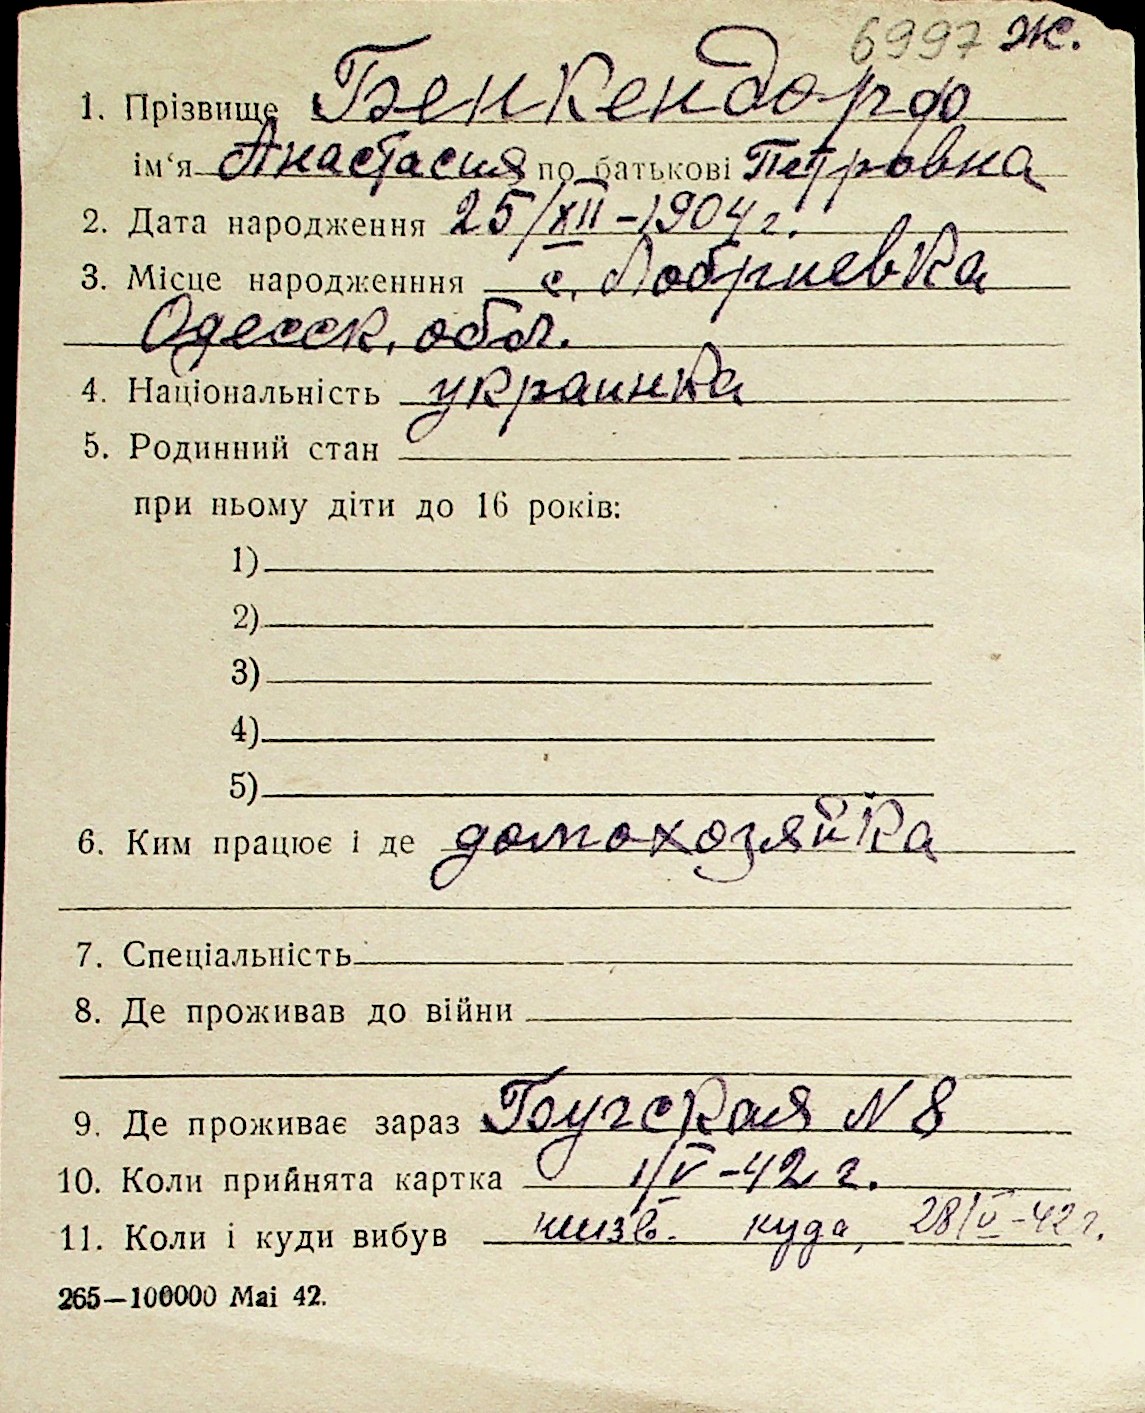 6997 Ж.
1. Прізвище Бенкендорф
ім‘я Анастасия по батькові Петровна
2. Дата народження 25/XII-1904 г.
3. Місце народженння с.
Одесск. обл.
4. Національність украинка
5. Родинний стан
при ньому діти до 16 років:
1)
2)
3)
4)
5)
6. Ким працює і де домохозяйка
7. Спеціальність
8. Де проживав до війни
9. Де проживає зараз Бугская N 8
10. Коли прийнята картка 1/V-42 г.
11. Коли і куди вибув куда, 28/V-42 г.
265—100000 Mai 42.